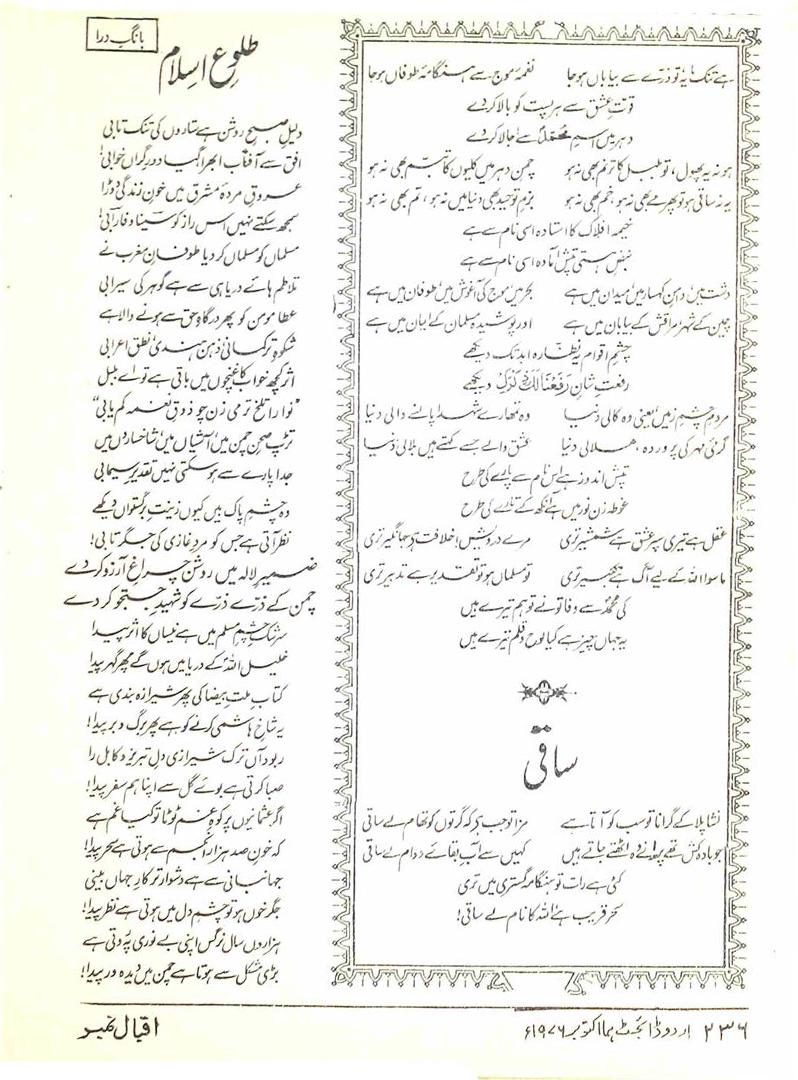 ہے تنک مایہ تو ذرّے سے بیاباں ہوجا نغمۂ موج سے ہنگامۂ طوفاں ہوجا
قوتِ عشق سے ہر پست کو بالا کر دے
دہر میں اسمِ محمدؐ سے اُجالا کر دے
ہو نہ یہ پھول، تو بلبل کا ترنم بھی نہ ہو چمنِ دہر میں کلیوں کا تبسم بھی نہ ہو
یہ نہ ساقی ہو تو پھر مے بھی نہ ہو، خم بھی نہ ہو بزمِ توحید بھی دنیا میں نہ ہو، تم بھی نہ ہو
خیمہ افلاک کا استادہ اسی نام سے ہے
نبضِ ہستی تپش آمادہ اسی نام سے ہے
دشت میں، دامنِ کہسار میں، میدان میں ہے بحر میں، موج کی آغوش میں، طوفان میں ہے
چین کے شہر، مراقش کے بیابان میں ہے اور پوشیدہ مسلمان کے ایمان میں ہے
چشمِ اقوام یہ نظّارہ ابد تک دیکھے
رفعتِ شانِ رَفَعْنَا لَکَ ذِکْرَکَ دیکھے
مردمِ چشمِ زمیں، یعنی وہ کالی دنیا وہ تمھارے شہدا پالنے والی دنیا
گرمیٔ مہر کی پروردہ، ہلالی دنیا عشق والے جسے کہتے ہیں بلالی دنیا
تپش اندوز ہے اس نام سے پارے کی طرح
غوطہ زن نور میں ہے آنکھ کے تارے کی طرح
عقل ہے تیری سپر، عشق ہے شمشیر تری مرے درویش! خلافت ہے جہانگیر تری
ماسوا اللہ کے لیے آگ ہے تکبیر تری تو مسلماں ہو تو تقدیر ہے تدبیر تری
کی محمدؐ سے وفا تو نے تو ہم تیرے ہیں
یہ جہاں چیز ہے کیا لوح و قلم تیرے ہیں
ساقی
نشا پلا کے گرانا تو سب کو آتا ہے مزا تو جب ہے کہ گرتوں کو تھام لے ساقی
جو بادہ کش تھے پرانے وہ اٹھتے جاتے ہیں کہیں سے آبِ بقائے دوام لے ساقی
کٹی ہے رات تو ہنگامہ گستری میں تری
سحر قریب ہے، اللہ کا نام لے ساقی!
بانگِ درا
طلوعِ اسلام
دلیلِ صبحِ روشن ہے ستاروں کی تنک تابی
افق سے آفتاب ابھرا گیا دورِ گراں خوابی!
عروقِ مردۂ مشرق میں خونِ زندگی دوڑا
سمجھ سکتے نہیں اس راز کو سینا و فارابی!
مسلماں کو مسلماں کر دیا طوفانِ مغرب نے
تلاطم ہائے دریا ہی سے ہے گوہر کی سیرابی
عطا مومن کو پھر درگاہِ حق سے ہونے والا ہے
شکوہِ ترکمانی، ذہنِ ہندی، نطقِ اعرابی
اثر کچھ خواب کا غنچوں میں باقی ہے تو اے بلبل
"نوا را تلخ تر می زن چو ذوقِ نغمہ کم یابی"
تڑپ صحنِ چمن میں، آشیاں میں، شاخساروں میں
جدا پارے سے ہو سکتی نہیں تقدیرِ سیمابی
وہ چشمِ پاک بیں کیوں زینتِ برگستواں دیکھے
نظر آتی ہے جس کو مردِ غازی کی جگر تابی!
ضمیرِ لالہ میں روشن چراغِ آرزو کر دے
چمن کے ذرّے ذرّے کو شہیدِ جستجو کر دے
سرشکِ چشمِ مسلم میں ہے نیساں کا اثر پیدا
خلیل اللہؑ کے دریا میں ہوں گے پھر گہر پیدا
کتابِ ملتِ بیضا کی پھر شیرازہ بندی ہے
یہ شاخِ ہاشمی کرنے کو ہے پھر برگ و بر پیدا!
ربود آں ترکِ شیرازی دلِ تبریز و کابل را
صبا کرتی ہے بوئے گل سے اپنا ہم سفر پیدا!
اگر عثمانیوں پر کوہِ غم ٹوٹا تو کیا غم ہے
کہ خونِ صد ہزار انجم سے ہوتی ہے سحر پیدا!
جہانبانی سے ہے دشوار تر کارِ جہاں بینی
جگر خوں ہو تو چشمِ دل میں ہوتی ہے نظر پیدا!
ہزاروں سال نرگس اپنی بے نوری پہ روتی ہے
بڑی مشکل سے ہوتا ہے چمن میں دیدہ ور پیدا!
۲۳۶ اردو ڈائجسٹ ہما اکتوبر ۱۹۷۶ء
اقبال نمبر